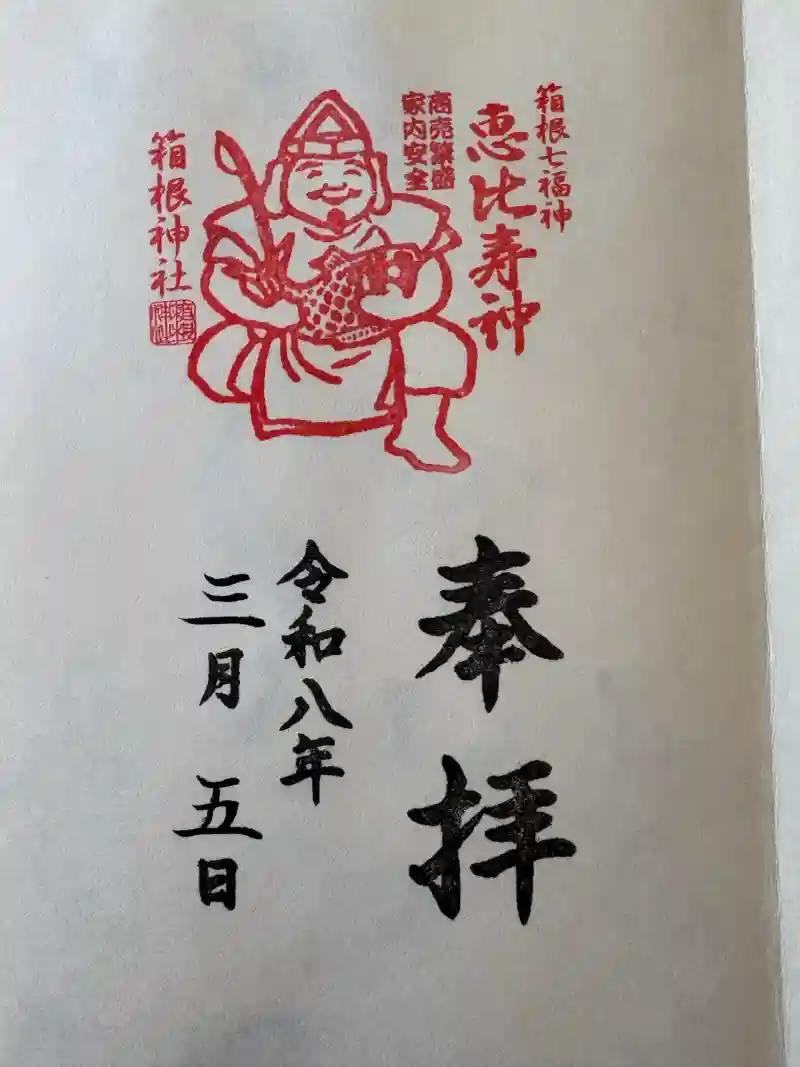 箱根七福神
恵比寿神
商売繁盛
家内安全
箱根神社
奉拝
令和八年
三月五日